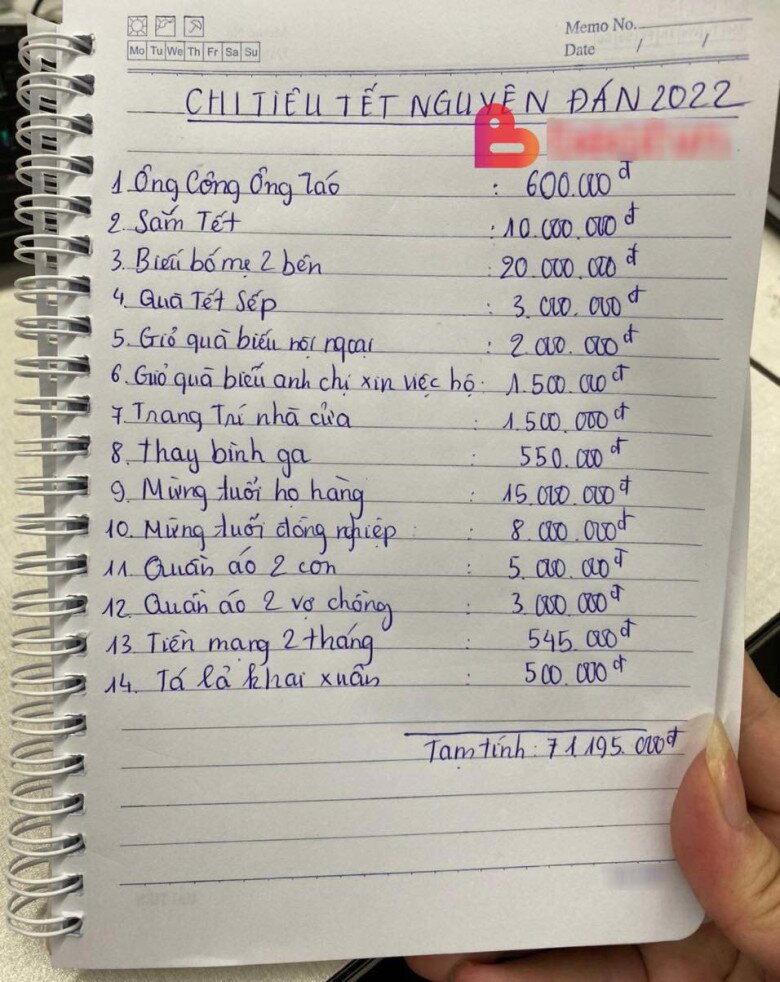 Memo No.
Mo Tu We Th Fr Sa Su
Date / /
CHI TIÊU TẾT NGUYÊN ĐÁN 2022
1. Ông Công Ông Táo : 600.000đ
2. Sắm Tết : 10.000.000đ
3. Biếu bố mẹ 2 bên : 20.000.000đ
4. Quà Tết Sếp : 3.000.000đ
5. Giỏ quà biếu nội ngoại : 2.000.000đ
6. Giỏ quà biếu anh chị xin việc hộ : 1.500.000đ
7. Trang Trí nhà cửa : 1.500.000đ
8. Thay bình ga : 550.000đ
9. Mừng tuổi họ hàng : 15.000.000đ
10. Mừng tuổi đồng nghiệp : 8.000.000đ
11. Quần áo 2 con : 5.000.000đ
12. Quần áo 2 vợ chồng : 3.000.000đ
13. Tiền mạng 2 tháng : 545.000đ
14. Tá lả khai xuân : 500.000đ
Tạm tính : 71.195.000đ